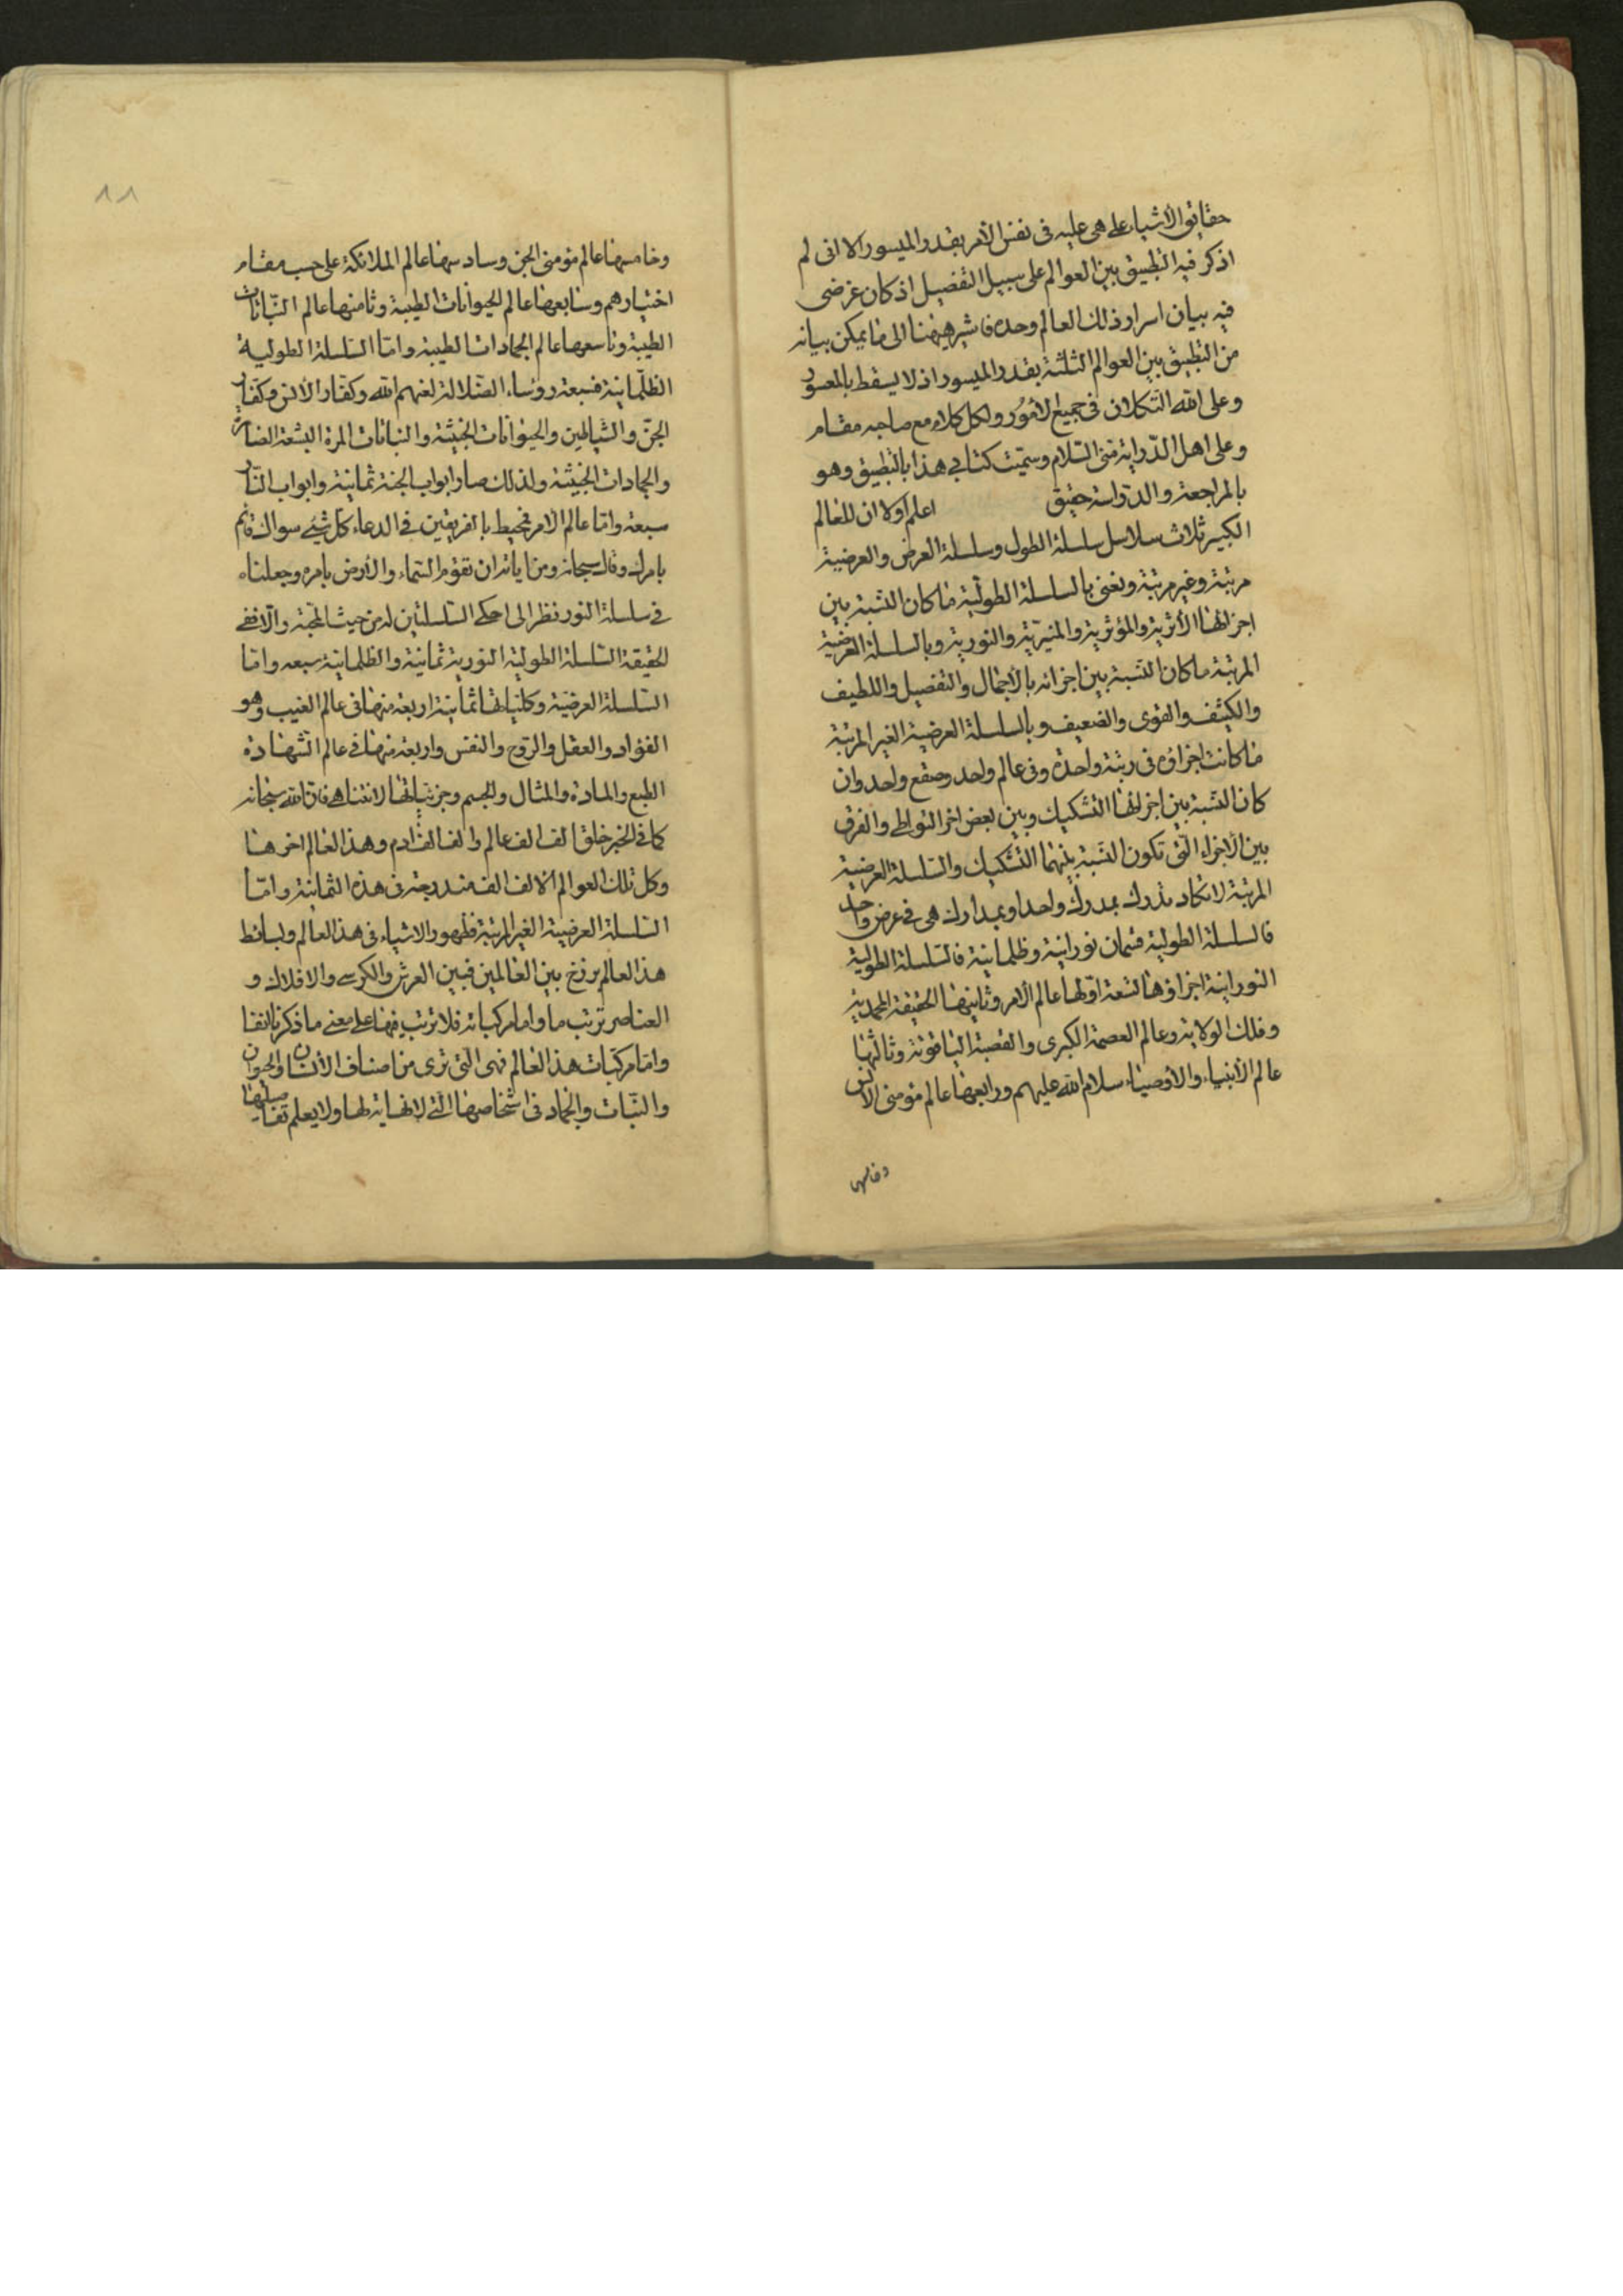 حقايق الأشياء على هى عليه فى نفس الأمر بقدر الميسور الا انى لم
اذكر فيه التطبيق بين العوالم على سبيل التفصيل اذ كان غرضى
فيه بيان اسرار ذلك العالم وحده فاشير هيهنا الى ما يمكن بيانه
من التطبيق بين العوالم الثلثة بقدر الميسور اذ لا يسقط بالمعسور
وعلى الله التكلان فى جميع الأمور ولكل كلام مع صاحبه مقام
وعلى اهل الدّراية منى السّلام وسمّيت كتابى هذا بالتطبيق وهو
بالمراجعة والدّراسة حقيق اعلم اولا ان للعالم
الكبير ثلاث سلاسل سلسلة الطول وسلسلة العرض والعرضية
مرتبة وغير مرتبة ونعنى بالسلسلة الطولية ما كان النسبة بين
اجزائها الأثرية والمؤثرية والمنيرية والنورية وبالسلسلة العرضية
المرتبة ما كان النسبة بين اجزائه بالأجمال والتفصيل واللطيف
والكثيف والقوى والضعيف وبالسلسلة العرضية الغير المرتبة
ما كانت اجزاؤه فى رتبة واحدة وفى عالم واحد وصقع واحد وان
كان النسبة بين اجزائها التشكيك وبين بعض اخر التواطى والفرق
بين الأجزاء التى تكون النسبة بينهما التشكيك والسلسلة العرضية
المرتبة لا تكاد تدرك بمدرك واحد او بمدارك هى فى عرض واحد
فالسلسلة الطولية قسمان نورانية وظلمانية فالسلسلة الطولية
النورانية اجزاؤها تسعة اوّلها عالم الأمر وثانيها الحقيقة المحمدية
وفلك الولاية وعالم العصمة الكبرى والقصبة الياقوتة وثالثها
عالم الأنبياء والأوصياء سلام الله عليهم ورابعها عالم مؤمنى الأنس
وخامسها
٨٨
وخامسها عالم مؤمنى الجن وسادسها عالم الملائكة على حسب مقام
اختيارهم وسابعها عالم الحيوانات الطيبة وثامنها عالم النّباتات
الطيبة وتاسعها عالم الجمادات الطيبة وامّا السّلسلة الطولية
الظلّمانية فسبعة رؤساء الضّلالة لعنهم الله وكفّار الأنس وكفّار
الجنّ والشياطين والحيوانات الخبيثة والنباتات المرة البشعة الضارة
والجمادات الخبيثة ولذلك صار ابواب الجنة ثمانية وابواب النّار
سبعة وامّا عالم الأمر فمحيط بالفريقين فى الدعاء كل شىء سواك قائم
بامرك وقال سبحانه ومن اياته ان تقوم السّماء والأرض بامره وجعلناه
فى سلسلة النور نظرا الى احكى السّلسلتين له من حيث المحبة والّا ففى
الحقيقة السّلسلة الطولية النورية ثمانية والظلمانية سبعه وامّا
السّلسلة العرضيّة وكلياتها ثمانية اربعة منها فى عالم الغيب وهو
الفؤاد والعقل والرّوح والنفس واربعة منها فى عالم الشّهادة
الطبع والمادة والمثال والجسم وجزئيّاتها لا تتناهى فان الله سبحانه
كما فى الخبر خلق الف الف عالم والف الف ادم وهذا العالم اخرها
وكل تلك العوالم الالف الف مندرجة فى هذه الثمانية وامّا
السّلسلة العرضية الغير المرتبة فظهور الاشياء فى هذا العالم وبسائط
هذا العالم برزخ بين العالمين فبين العرش والكرسى والافلاك و
العناصر ترتب ما واما مركباته فلا ترتيب فيها على معنى ما ذكرنا انفا
وامّا مركبات هذا العالم فهى التى ترى من اصناف الأنسان والحيوان
والنّبات والجماد فى اشخاصها الّتى لا نهاية لها ولا يعلم تفاصيلها